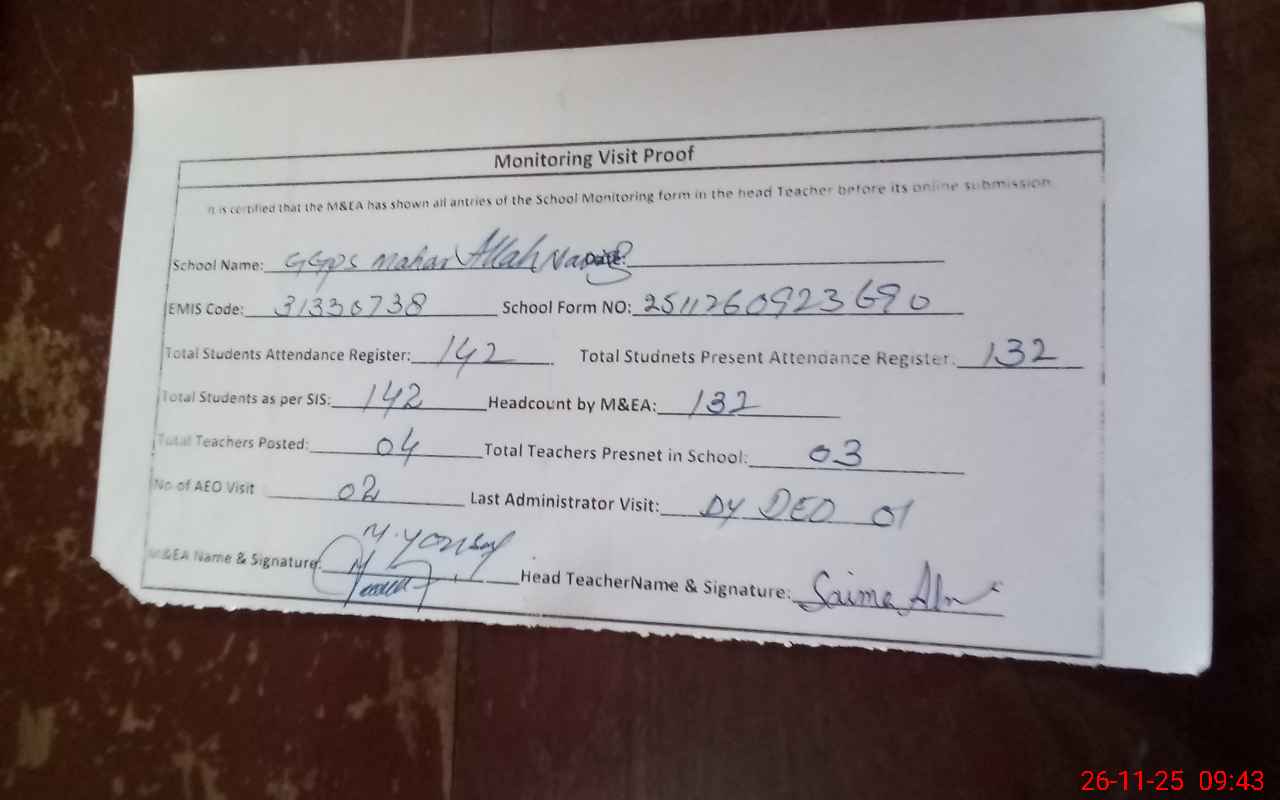 Monitoring Visit Proof
It is certified that the M&EA has shown all antries of the School Monitoring form in the head Teacher before its online submission
School Name: GGPS Mahar Allah Date:
EMIS Code: 31330738 School Form NO: 2511260923690
Total Students Attendance Register: 142 Total Studnets Present Attendance Register: 132
Total Students as per SIS: 142 Headcount by M&EA: 132
Total Teachers Posted: 04 Total Teachers Presnet in School: 03
No of AEO Visit 02 Last Administrator Visit: DY DEO 01
M&EA Name & Signature: M. Head TeacherName & Signature: Saima
26-11-25 09:43